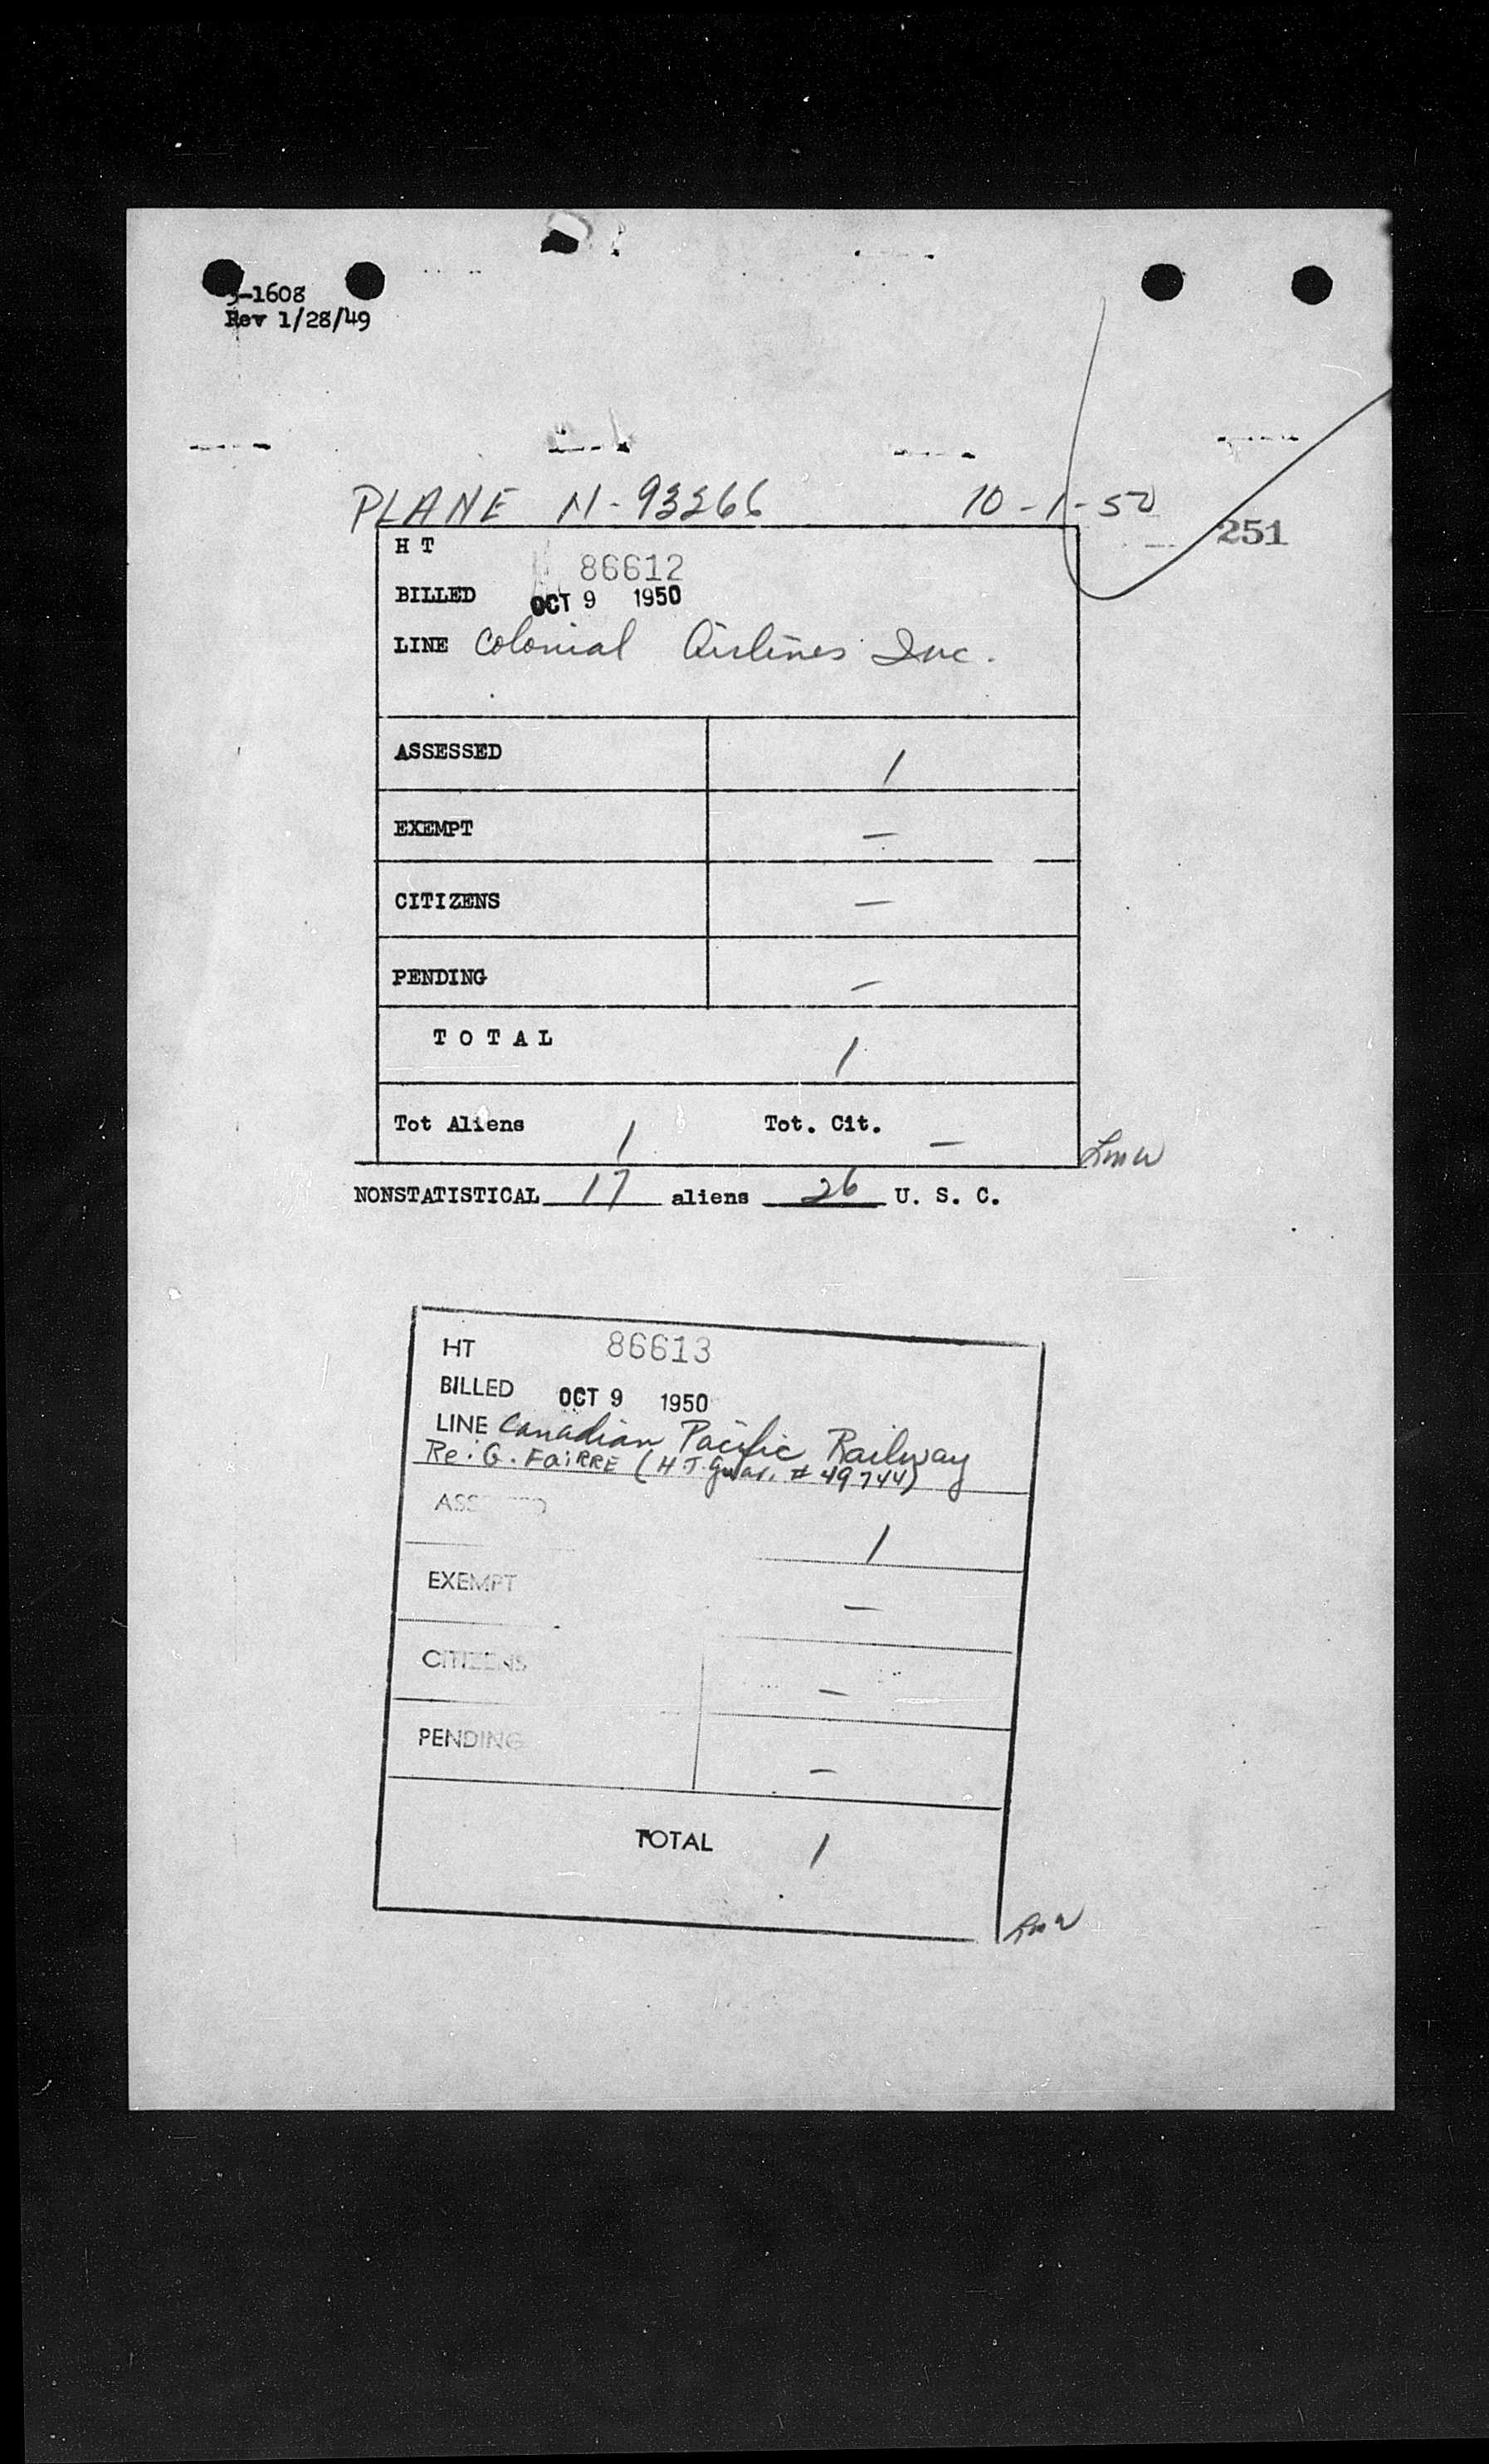 3-1608
Rev 1/28/49
PLANE N-93266 10-1-50
251
H T 86612
BILLED OCT 9 1950
LINE Colonial Airlines Inc.
ASSESSED 1
EXEMPT —
CITIZENS —
PENDING —
T O T A L 1
Tot Aliens 1 Tot. Cit. —
Lmw
NONSTATISTICAL 17 aliens 26 U. S. C.
HT 86613
BILLED OCT 9 1950
LINE Canadian Pacific Railway
Re: G. FaiRRE (H T. Guar. # 49744)
ASSESSED 1
EXEMPT —
CITIZENS —
PENDING —
TOTAL 1
Lmw